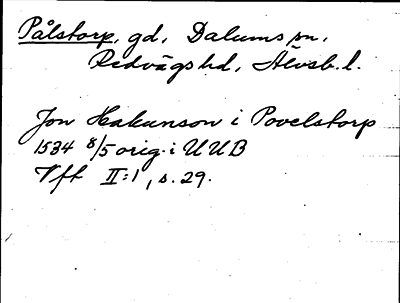 Pålstorp, gd, Dalums sn,
Redvägs hd, Älvsb. l.
Jon Hakunson i Povelstorp
1534 8/5 orig. i UUB
Vft II:1, s. 29.